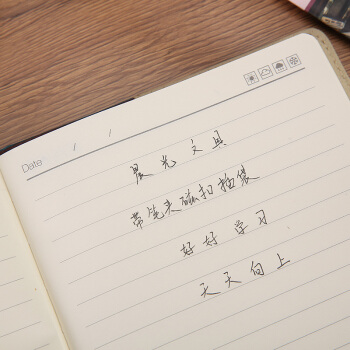 Date / /
晨光文具
带笔夹磁扣拍袋
好好学习
天天向上